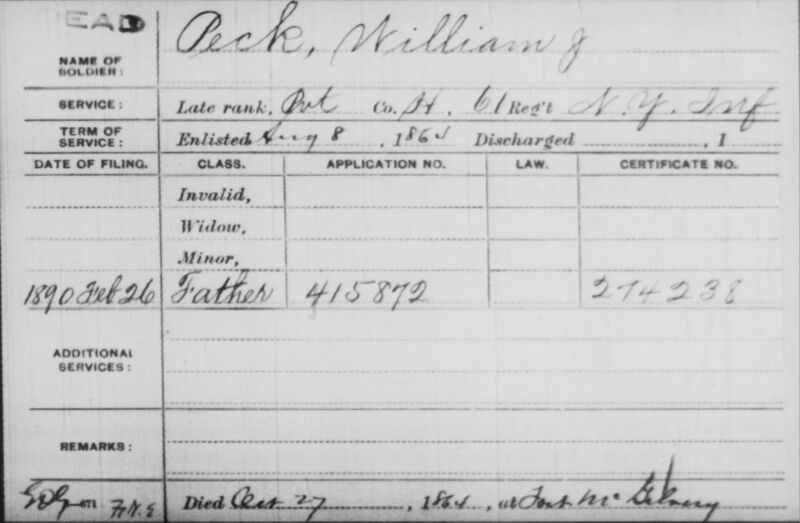 DEAD
NAME OF SOLDIER: Peck, William J
SERVICE: Late rank, Pvt Co. H, 61 Reg't N.Y. Inf
TERM OF SERVICE: Enlisted Aug 8, 1864 Discharged , 1
DATE OF FILING. CLASS. APPLICATION NO. LAW. CERTIFICATE NO.
Invalid,
Widow,
Minor,
1890 Feb 26 Father 415872 274238
ADDITIONAL SERVICES:
REMARKS:
Died Oct 27, 1864, at Fort McGilvery